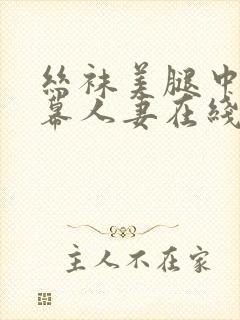 絲袜美腿中
幕人妻在綫
主人不在家